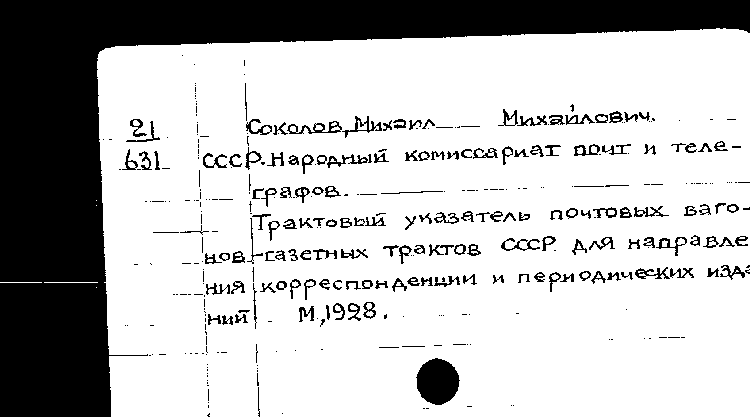 21 Соколов, Михаил Михайлович.
631 СССР. Народный комиссариат почт и теле-
графов.
Трактовый указатель почтовых ваго-
нов-газетных трактов СССР для направле
ния корреспонденции и периодических изда
ний М., 1928.